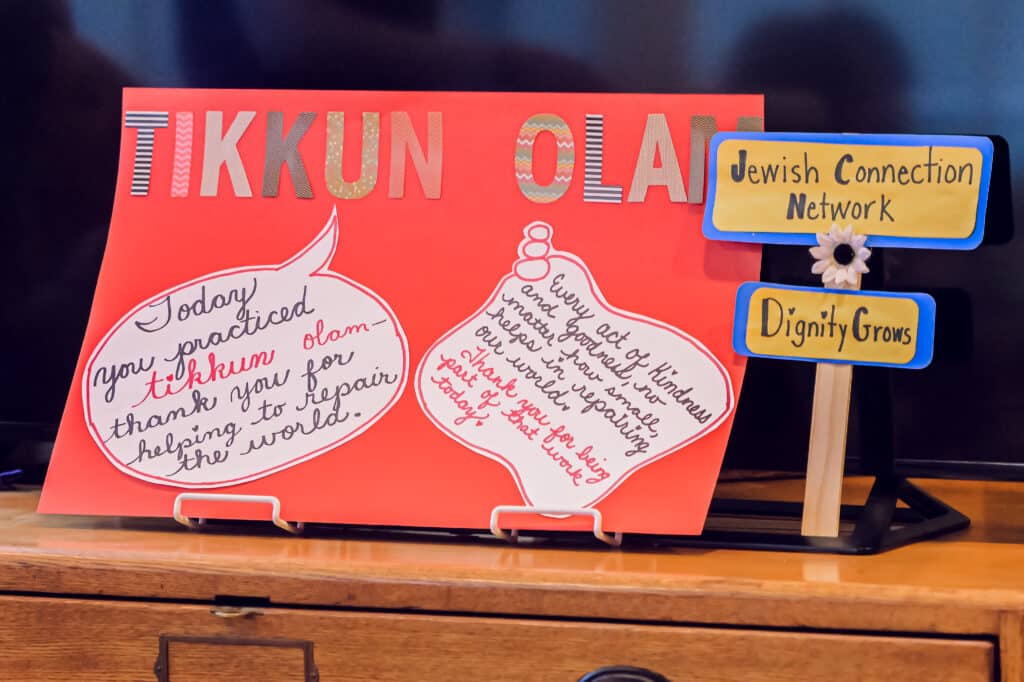 TIKKUN OLAM
Today
you practiced
tikkun olam-
thank you for
helping to repair
the world.
Every act of Kindness
and goodness, no
matter how small,
helps in repairing
our world.
Thank you for being
part of that work
today.
Jewish Connection
Network
Dignity Grows